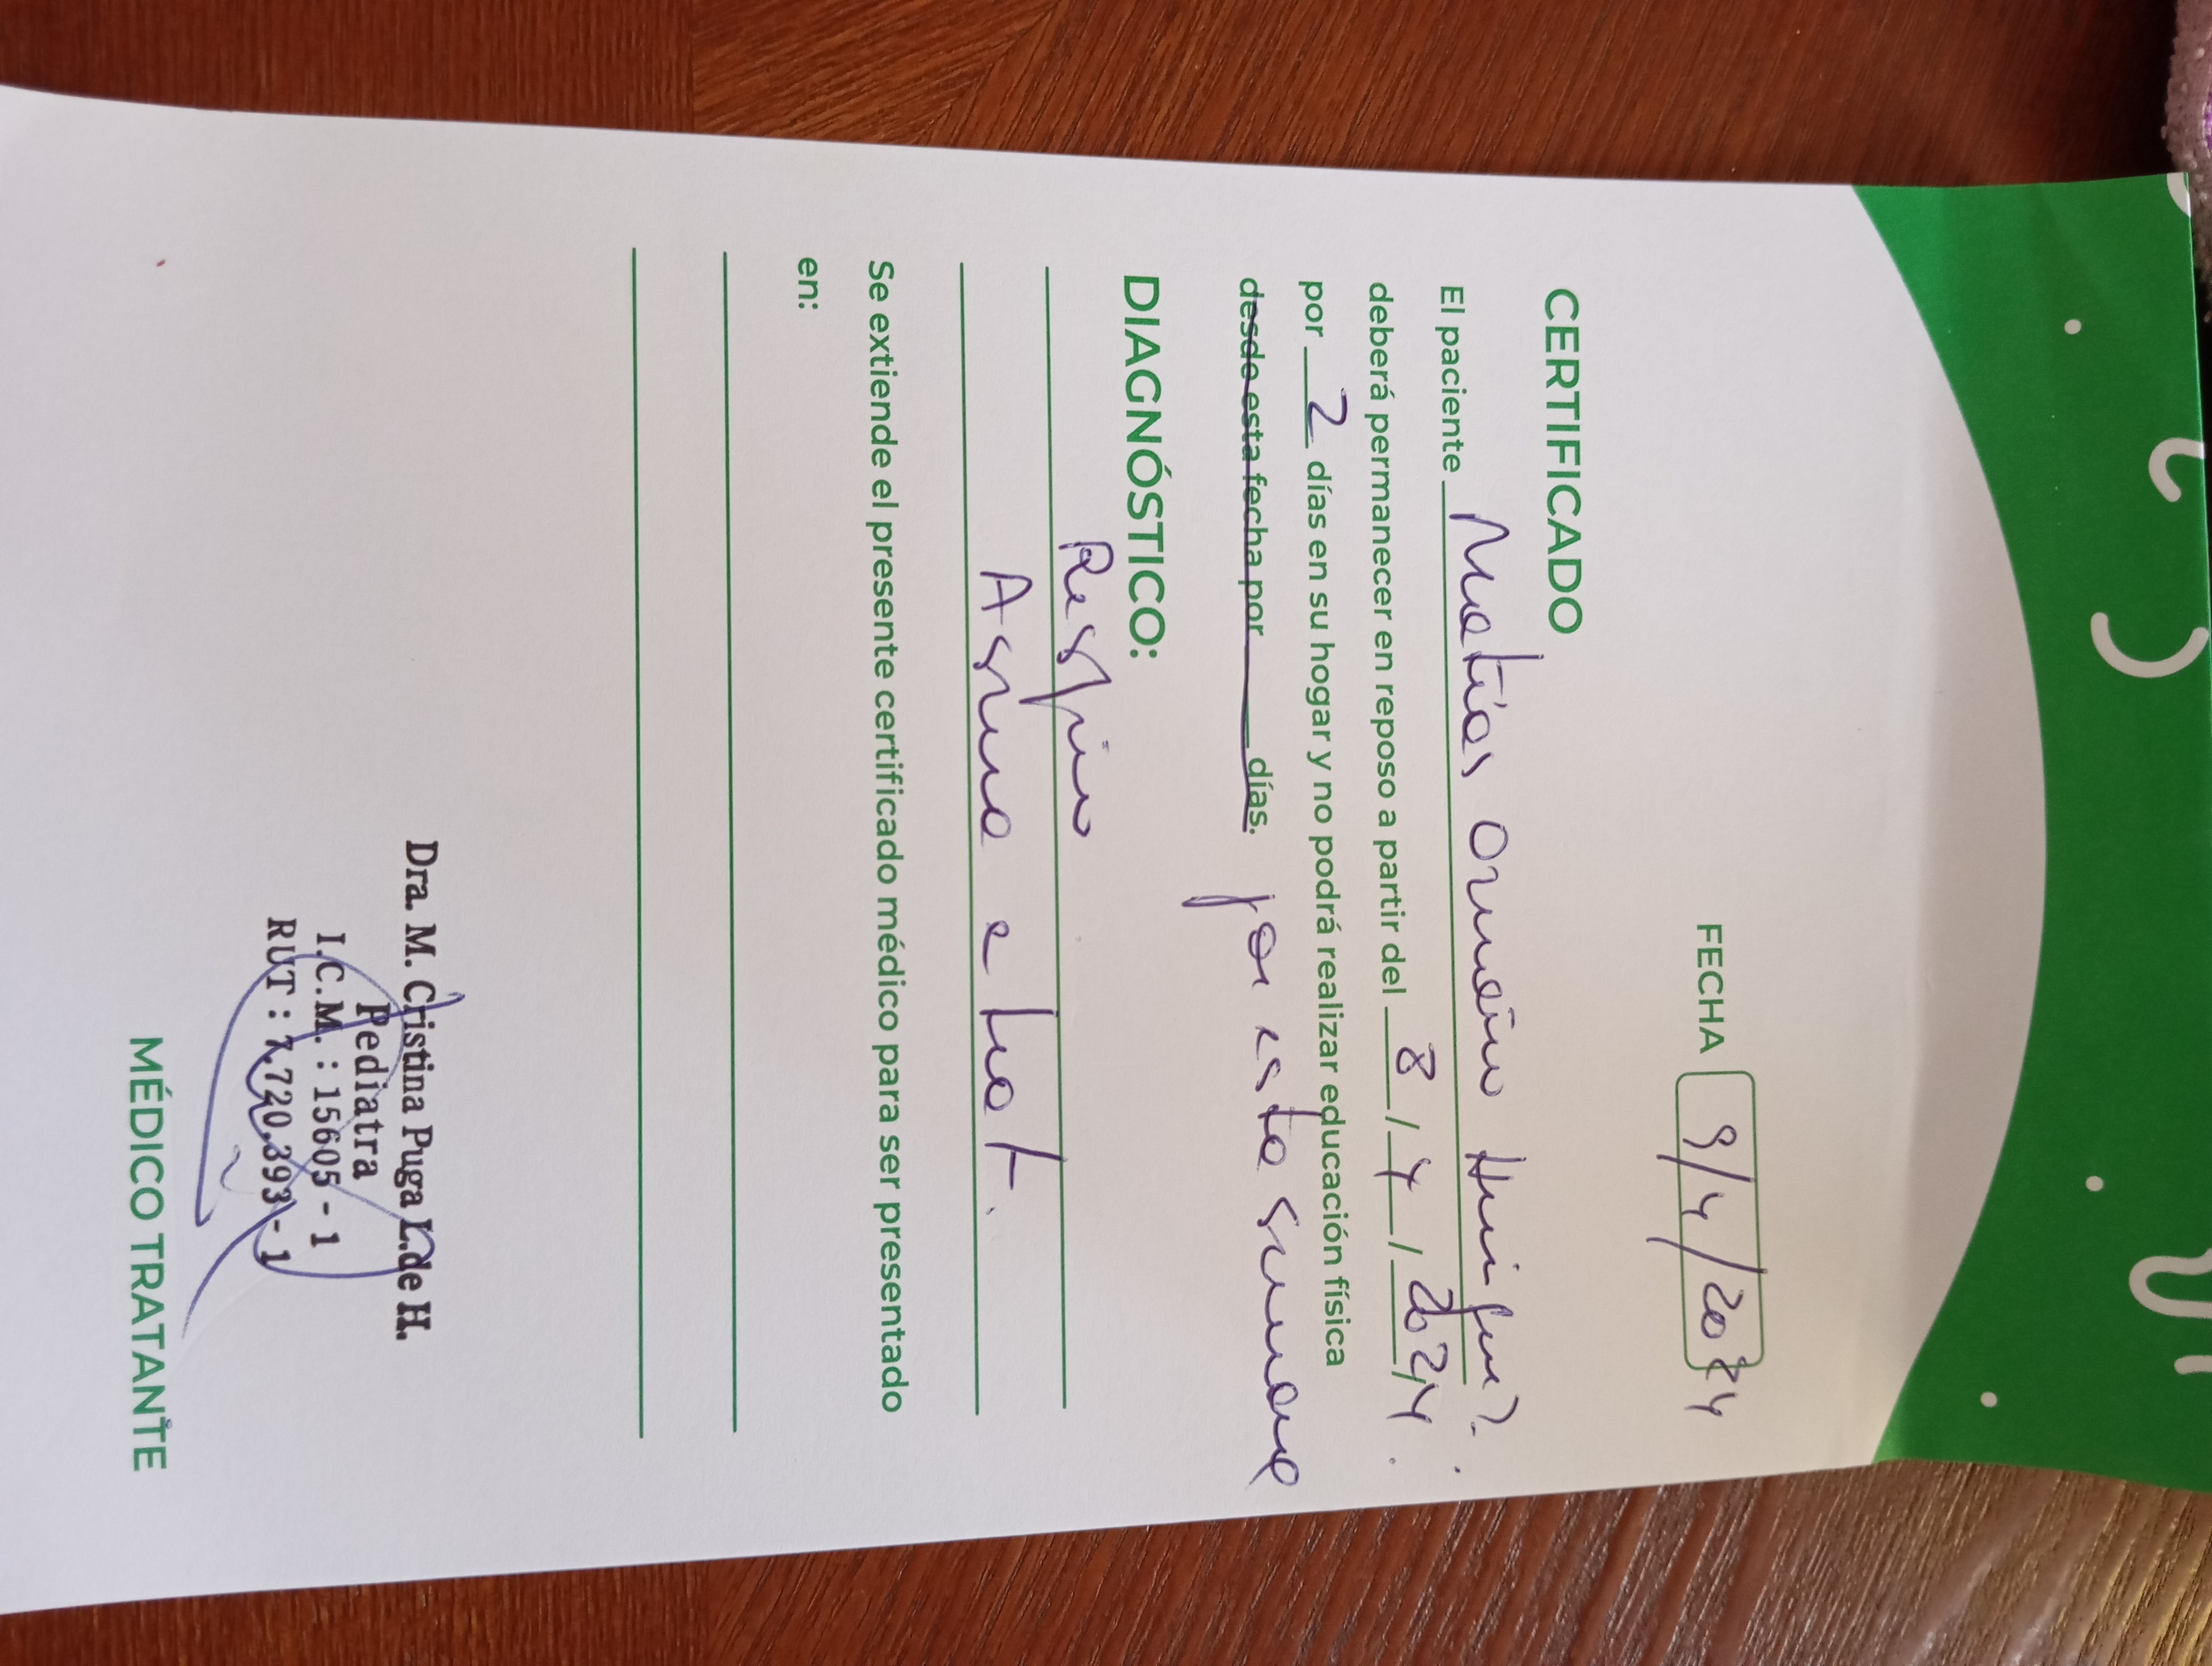 FECHA 9/4/2024
CERTIFICADO
El paciente Matías Ormeño
deberá permanecer en reposo a partir del 8/4/2024.
por 2 días en su hogar y no podrá realizar educación física
desde esta fecha por ___ días. por esta semana
DIAGNÓSTICO:
Resfrío
Asma e trat.
Se extiende el presente certificado médico para ser presentado
en:
Dra. M. Cristina Puga L.de H.
Pediatra
I.C.M. : 15605 - 1
RUT : 7.720.393 - 1
MÉDICO TRATANTE